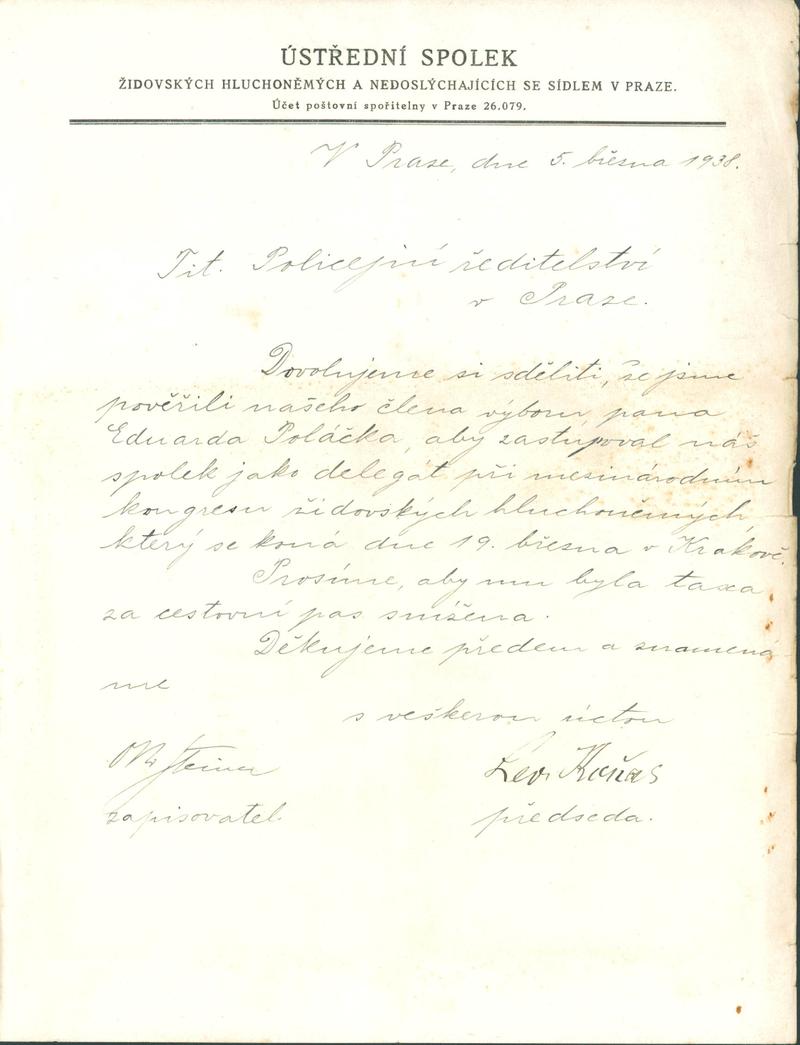 ÚSTŘEDNÍ SPOLEK
ŽIDOVSKÝCH HLUCHONĚMÝCH A NEDOSLÝCHAJÍCÍCH SE SÍDLEM V PRAZE.
Účet poštovní spořitelny v Praze 26.079.
V Praze, dne 5. března 1938.
Tit. Policejní ředitelství
v Praze.
Dovolujeme si sděliti, že jsme
pověřili našeho člena výboru pana
Eduarda Poláčka, aby zastupoval náš
spolek jako delegát při mezinárodním
kongresu židovských hluchoněmých,
který se koná dne 19. března v Krakově.
Prosíme, aby mu byla taxa
za cestovní pas snížena.
Děkujeme předem a znamená-
me
s veškerou úctou
Steiner
Lev
zapisovatel.
předseda.